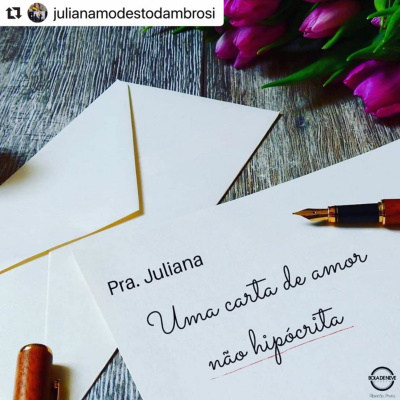 julianamodestodambrosi
Pra. Juliana
Uma carta de amor
não hipócrita
BOLA DE NEVE
Ribeirão Preto